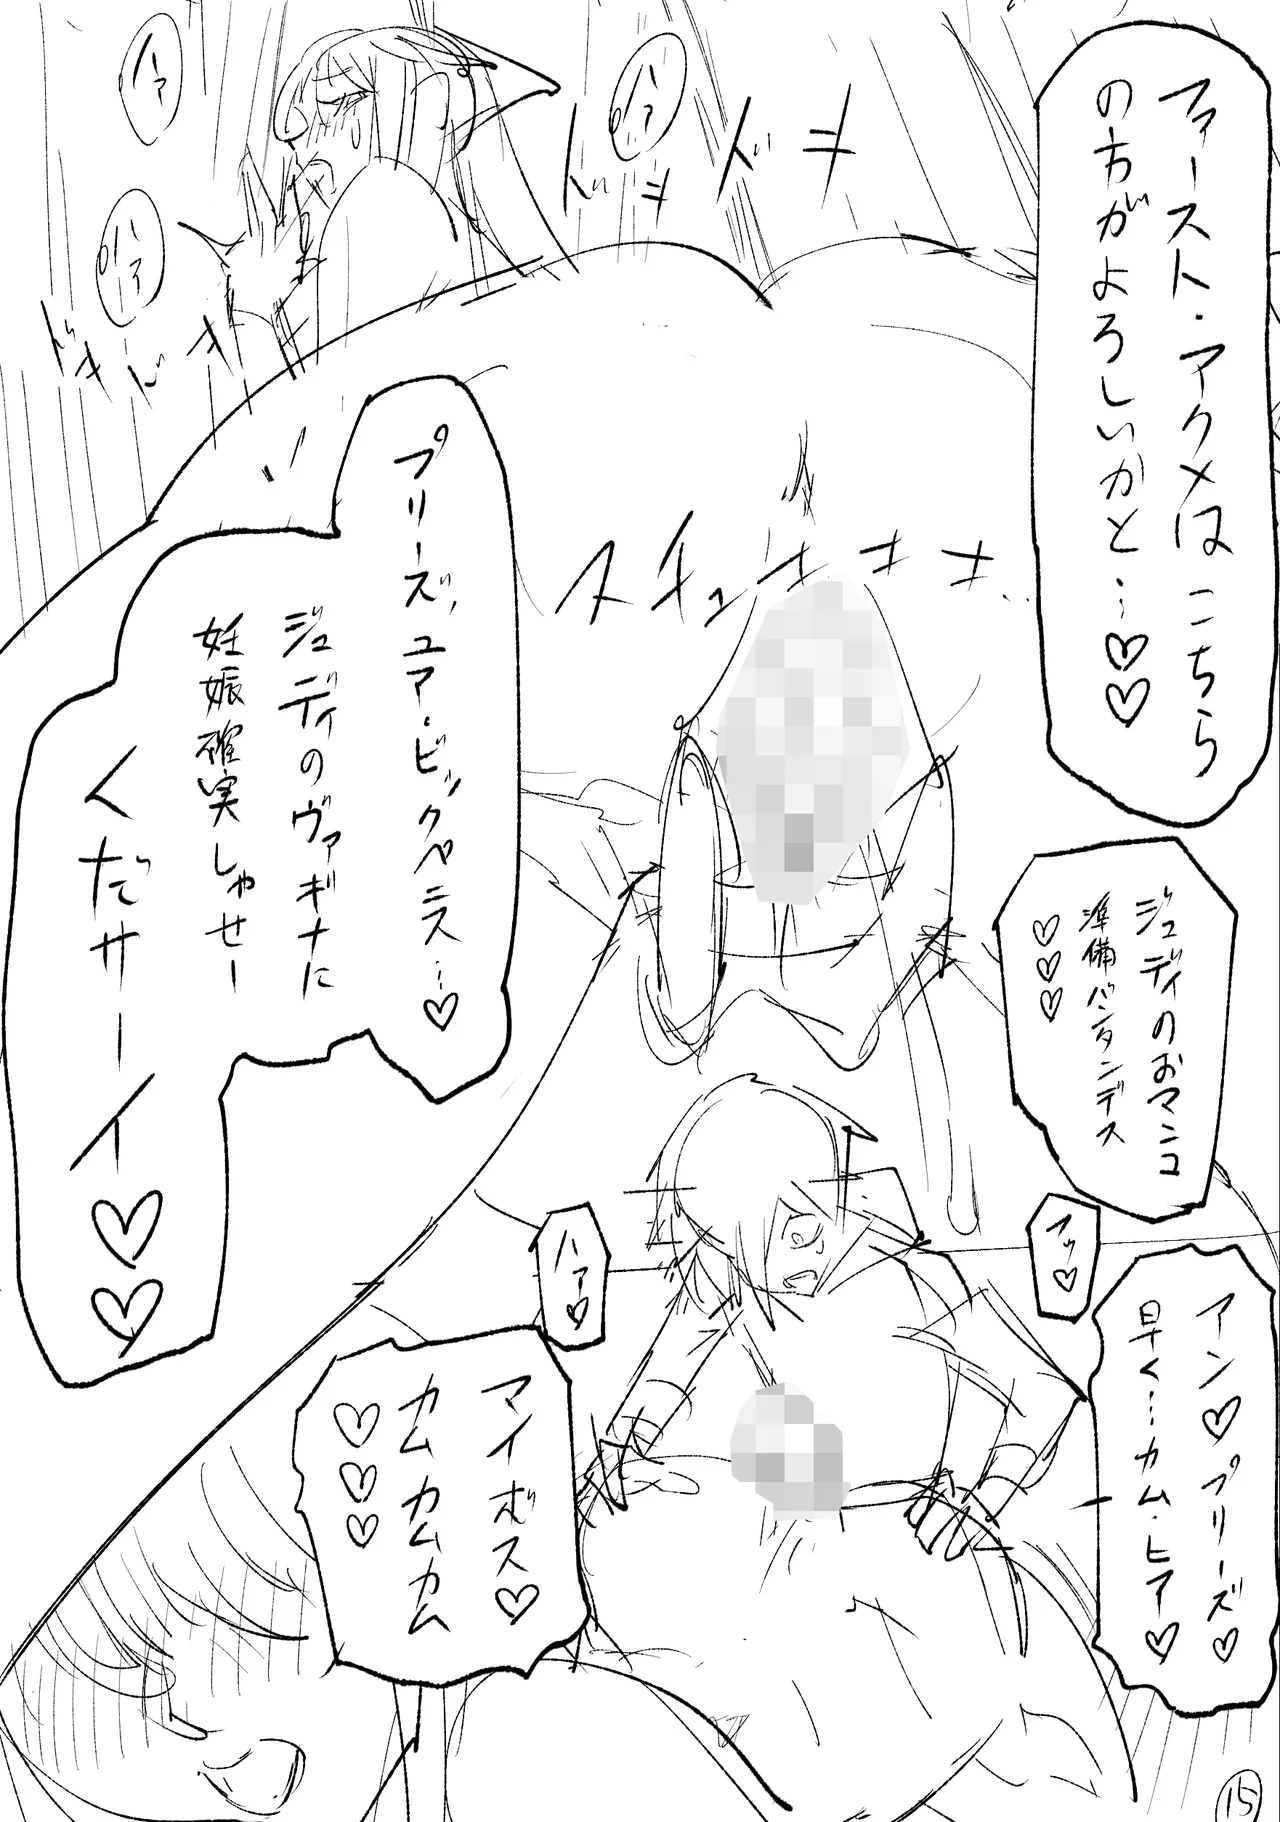 ファースト・アクメはこちら
の方がよろしいかと…♡♡
ドキ
ドキ
ハァ
ハァ
ハァ
ドキ
ドキ
プリーズ、ユア・ビックペニス…♡
ジュディのヴァギナに
妊娠確実しゃせー
くだサーイ♡♡
ヌチュ
ジュディのおマンコ
準備バンタンデス
♡♡♡
フッ♡
アン♡プリーズ♡
早く…カム・ヒア♡
ハァ♡
マイボス♡
カムカムカム
♡♡♡
15